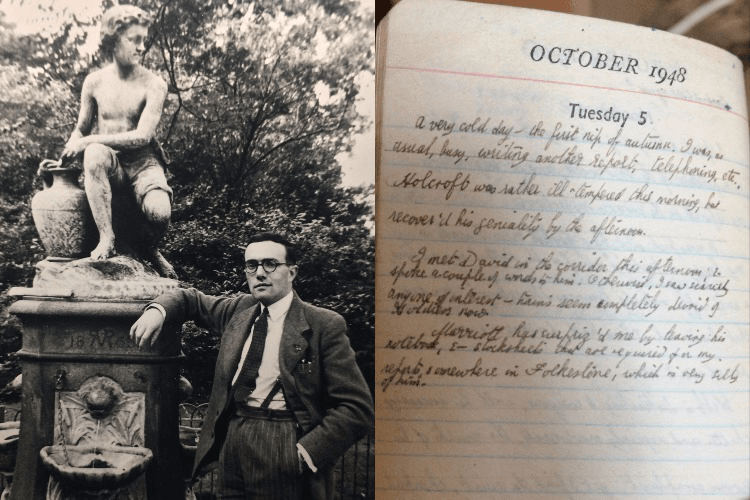 OCTOBER 1948
Tuesday 5.
a very cold day - the first nip of autumn. I was, as
usual, busy, writing another report, telephoning, etc.
Holcroft was rather ill-tempered this morning, but
recover'd his geniality by the afternoon.
I met David in the corridor this afternoon; &
spoke a couple of words to him. Otherwise, I saw scarcely
anyone of interest - trains seem completely devoid of
soldiers now.
Marriott has surpriz'd me by leaving his
notebook, & stocksheets that are required for my
report, somewhere in Folkestone, which is very silly
of him.